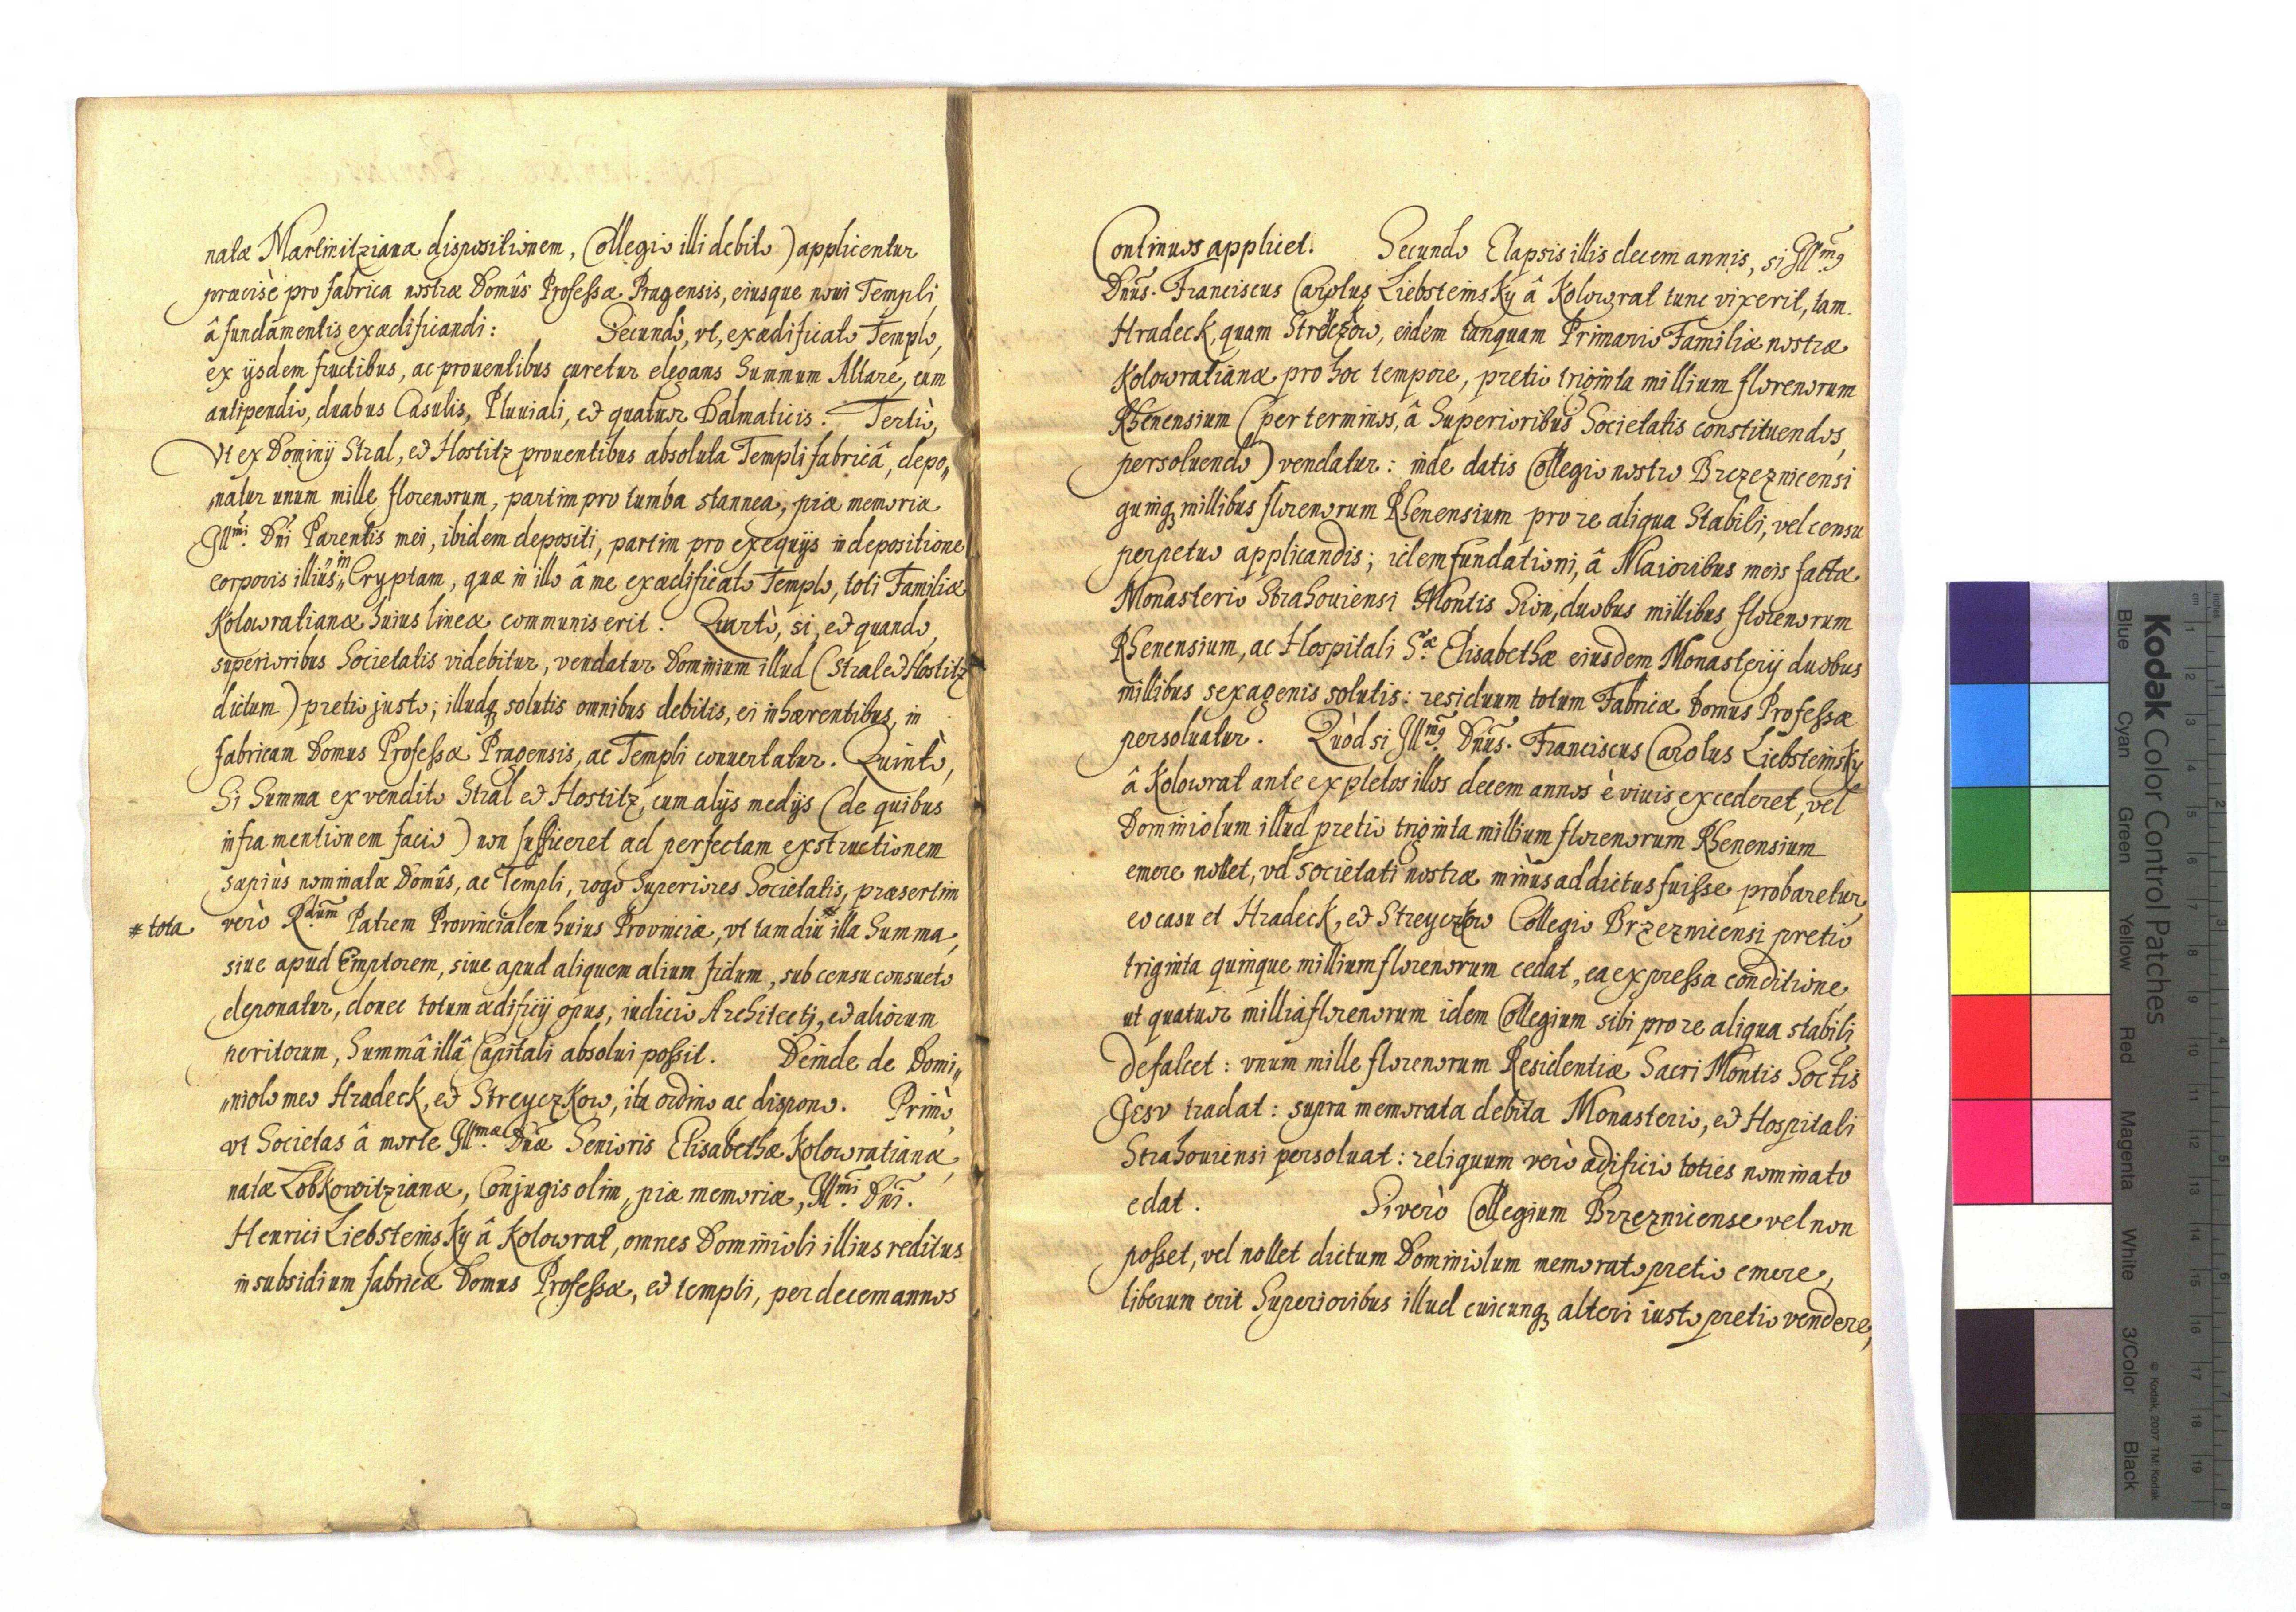 natæ Martinitzianæ dispositionem, Collegio illi debito) applicentur
præcisè pro fabrica nostræ Domûs Professæ Pragensis, eiusque noui Templi
â fundamentis exædificandi: Secundò, vt, exædificato Templo,
ex ijsdem fructibus, ac prouentibus curetur elegans Summum Altare, cum
antipendio, duabus Casulis, Pluuiali, et quatuor Dalmaticis. Tertiò,
Vt ex Dominij Stral, et Hostitz prouentibus absoluta Templi fabricâ, depo„
„natur unum mille florenorum, partim pro tumba stannea, piæ memoriæ
Illmi. Dni Parentis mei, ibidem depositi, partim pro exequijs in depositione
corporis illius in Cryptam, quæ in illo â me exædificato Templo, toti Familiæ
Kolowratianæ huius lineæ communis erit. Quartò, si, et quando,
superioribus Societatis videbitur, vendatur Dominium illud (Stral et Hostitz
dictum) pretio justo; illudq3 solutis omnibus debitis, ei inhærentibus, in
fabricam Domus Professæ Pragensis, ac Templi conuertatur. Quintò,
Si Summa ex vendito Stral et Hostitz, cum alijs medijs (de quibus
infra mentionem facio) non sufficeret ad perfectam exstructionem
sæpiùs nominatæ Domûs, ac Templi, rogo Superiores Societatis, præsertim
# tota verò Rdum Patrem Provincialem huius Provinciæ, vt tam diu # illa Summa,
siue apud Emptorem, siue apud aliquem alium fidum, sub censu consueto
deponatur, donec totum ædificij opus, iudicio Architecti, et aliorum
peritorum, Summâ illâ Capitali absolui possit. Deinde de Domi„
„niolo meo Hradeck, et Streyczkow, ita ordino ac dispono. Primò,
vt Societas â morte Illmæ. Dnæ Senioris Elisabethæ Kolowratianæ,
natæ Lobkowitzianæ, Conjugis olim, piæ memoriæ, Illmi. Dni.
Henrici Liebsteinsky â Kolowrat, omnes Dominioli illius reditus
in subsidium fabricæ Domus Professæ, et templi, per decem annos
Continuos applicet. Secundo Elapsis illis decem annis, si Illmg
Dnus. Franciscus Carolus Liebsteinsky â Kolowrat tunc vixerit, tam
Hradeck, quam Streyczkow, eidem tanquam Primario Familiæ nostræ
Kolowratianæ pro hoc tempore, pretio triginta millium florenorum
Rhenensium (per terminos, â Superioribus Societatis constituendos,
persoluendo) vendatur: inde datis Collegio nostro Brzeznicensi
quinq3 millibus florenorum Rhenensium pro re aliqua Stabili, vel censu
perpetuo applicandis; item fundationi, â Maioribus meis factæ
Monasterio Strahouiensi Montis Sion, duobus millibus florenorum
Rhenensium, ac Hospitali Sæ. Elisabethæ eiusdem Monasterij duobus
millibus sexagenis solutis: residuum totum Fabricæ Domus Professæ
persoluatur. Quòd si Illmg. Dnus. Franciscus Carolus Liebsteinsky
â Kolowrat ante expletos illos decem annos è viuis excederet, vel
Dominiolum illud pretio triginta millium florenorum Rhenensium
emere nollet, vel societati nostræ minùs addictus fuisse probaretur,
eo casu et Hradeck, et Streyczkow Collegio Brzeznicensi pretio
triginta quinque millium florenorum cedat, ea expressa conditione,
ut quatuor millia florenorum idem Collegium sibi pro re aliqua stabili
defalcet: vnum mille florenorum Residentiæ Sacri Montis Soctis
Jesv tradat: supra memorata debita Monasterio, et Hospitali
Strahouiensi persoluat: reliquum verò ædificio toties nominato
cedat. Si verò Collegium Brzeznicense vel non
posset, vel nollet dictum Dominiolum memorato pretio emere,
liberum erit Superioribus illud cuicunq3 alteri iusto pretio vendere,
Kodak Color Control Patches
© Kodak, 2007 TM: Kodak
Blue Cyan Green Yellow Red Magenta White 3/Color Black